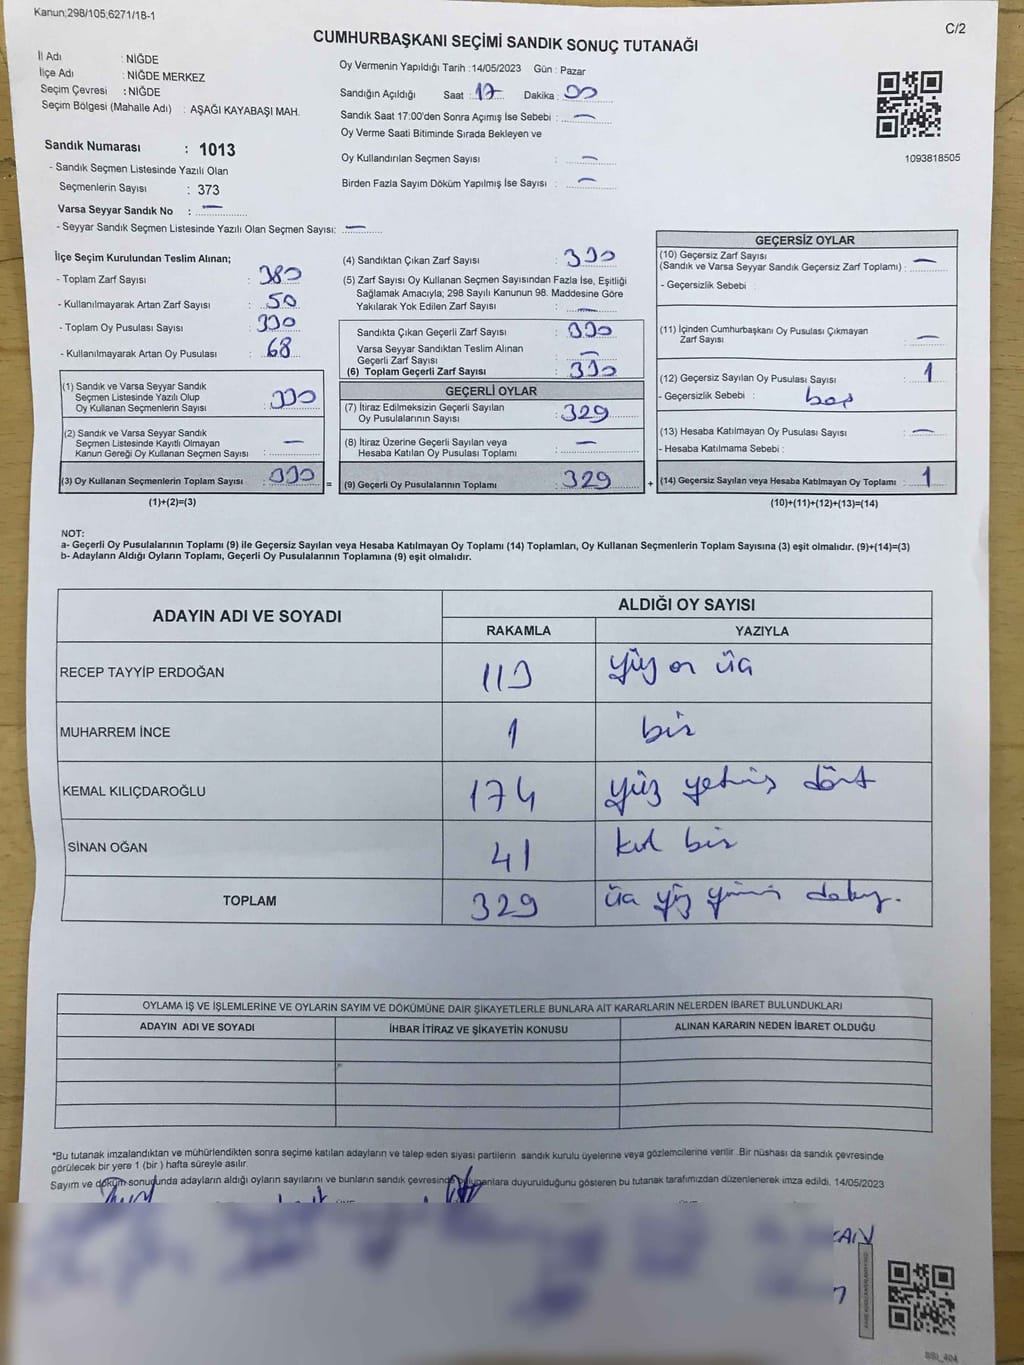 Kanun;298/105;6271/18-1
C/2
CUMHURBAŞKANI SEÇİMİ SANDIK SONUÇ TUTANAĞI
İl Adı : NİĞDE
İlçe Adı : NİĞDE MERKEZ
Seçim Çevresi : NİĞDE
Seçim Bölgesi (Mahalle Adı) : AŞAĞI KAYABAŞI MAH.
Sandık Numarası : 1013
- Sandık Seçmen Listesinde Yazılı Olan
Seçmenlerin Sayısı : 373
Varsa Seyyar Sandık No : —
- Seyyar Sandık Seçmen Listesinde Yazılı Olan Seçmen Sayısı: —
Oy Vermenin Yapıldığı Tarih :14/05/2023 Gün : Pazar
Sandığın Açıldığı Saat : 17 Dakika : 00
Sandık Saat 17:00'den Sonra Açımış İse Sebebi : —
Oy Verme Saati Bitiminde Sırada Bekleyen ve
Oy Kullandırılan Seçmen Sayısı : —
Birden Fazla Sayım Döküm Yapılmış İse Sayısı : —
1093818505
İlçe Seçim Kurulundan Teslim Alınan;
- Toplam Zarf Sayısı : 380
- Kullanılmayarak Artan Zarf Sayısı : 50
- Toplam Oy Pusulası Sayısı : 390
- Kullanılmayarak Artan Oy Pusulası : 68
(1) Sandık ve Varsa Seyyar Sandık
Seçmen Listesinde Yazılı Olup
Oy Kullanan Seçmenlerin Sayısı : 330
(2) Sandık ve Varsa Seyyar Sandık
Seçmen Listesinde Kayıtlı Olmayan
Kanun Gereği Oy Kullanan Seçmen Sayısı : —
(3) Oy Kullanan Seçmenlerin Toplam Sayısı : 330
(1)+(2)=(3)
(4) Sandıktan Çıkan Zarf Sayısı : 330
(5) Zarf Sayısı Oy Kullanan Seçmen Sayısından Fazla İse, Eşitliği
Sağlamak Amacıyla; 298 Sayılı Kanunun 98. Maddesine Göre
Yakılarak Yok Edilen Zarf Sayısı : —
Sandıkta Çıkan Geçerli Zarf Sayısı : 330
Varsa Seyyar Sandıktan Teslim Alınan
Geçerli Zarf Sayısı : —
(6) Toplam Geçerli Zarf Sayısı : 330
GEÇERLİ OYLAR
(7) İtiraz Edilmeksizin Geçerli Sayılan
Oy Pusulalarının Sayısı : 329
(8) İtiraz Üzerine Geçerli Sayılan veya
Hesaba Katılan Oy Pusulası Toplamı : —
= (9) Geçerli Oy Pusulalarının Toplamı : 329
GEÇERSİZ OYLAR
(10) Geçersiz Zarf Sayısı
(Sandık ve Varsa Seyyar Sandık Geçersiz Zarf Toplamı) : —
- Geçersizlik Sebebi :
(11) İçinden Cumhurbaşkanı Oy Pusulası Çıkmayan
Zarf Sayısı : —
(12) Geçersiz Sayılan Oy Pusulası Sayısı : 1
- Geçersizlik Sebebi : boş
(13) Hesaba Katılmayan Oy Pusulası Sayısı : —
- Hesaba Katılmama Sebebi :
+ (14) Geçersiz Sayılan veya Hesaba Katılmayan Oy Toplamı : 1
(10)+(11)+(12)+(13)=(14)
NOT:
a- Geçerli Oy Pusulalarının Toplamı (9) ile Geçersiz Sayılan veya Hesaba Katılmayan Oy Toplamı (14) Toplamları, Oy Kullanan Seçmenlerin Toplam Sayısına (3) eşit olmalıdır. (9)+(14)=(3)
b- Adayların Aldığı Oyların Toplamı, Geçerli Oy Pusulalarının Toplamına (9) eşit olmalıdır.
ADAYIN ADI VE SOYADI ALDIĞI OY SAYISI
RAKAMLA YAZIYLA
RECEP TAYYİP ERDOĞAN 113 yüz on üç
MUHARREM İNCE 1 bir
KEMAL KILIÇDAROĞLU 174 yüz yetmiş dört
SİNAN OĞAN 41 kırk bir
TOPLAM 329 üç yüz yirmi dokuz.
OYLAMA İŞ VE İŞLEMLERİNE VE OYLARIN SAYIM VE DÖKÜMÜNE DAİR ŞİKAYETLERLE BUNLARA AİT KARARLARIN NELERDEN İBARET BULUNDUKLARI
ADAYIN ADI VE SOYADI İHBAR İTİRAZ VE ŞİKAYETİN KONUSU ALINAN KARARIN NEDEN İBARET OLDUĞU
*Bu tutanak imzalandıktan ve mühürlendikten sonra seçime katılan adayların ve talep eden siyasi partilerin sandık kurulu üyelerine veya gözlemcilerine verilir .Bir nüshası da sandık çevresinde
görülecek bir yere 1 (bir ) hafta süreyle asılır.
Sayım ve döküm sonucunda adayların aldığı oyların sayılarını ve bunların sandık çevresinde bulunanlara duyurulduğunu gösteren bu tutanak tarafımızdan düzenlenerek imza edildi. 14/05/2023